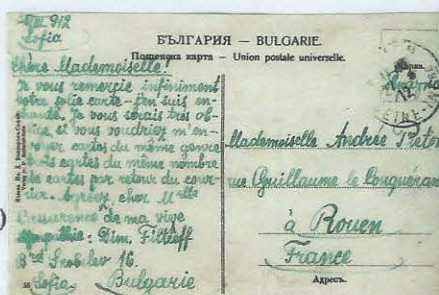 912
Sofia
БЪЛГАРИЯ — BULGARIE.
Пощенска карта – Union postale universelle.
Chère Mademoiselle!
Je vous remercie infiniment
votre jolie carte. J'en suis en-
chanté. Je vous serais très ob-
ligé si vous voudriez m'en-
voyer cartes du même genre
trois cartes du même nombre
de cartes par retour du cour-
rier. Agréez, cher Mlle
l'assurance de ma vive
sympathie: Dim. Filtieff
Bd Scobelev 16.
Sofia Bulgarie
Mademoiselle Andrée
rue Guillaume le Conquérant
à Rouen
France
Адресъ.